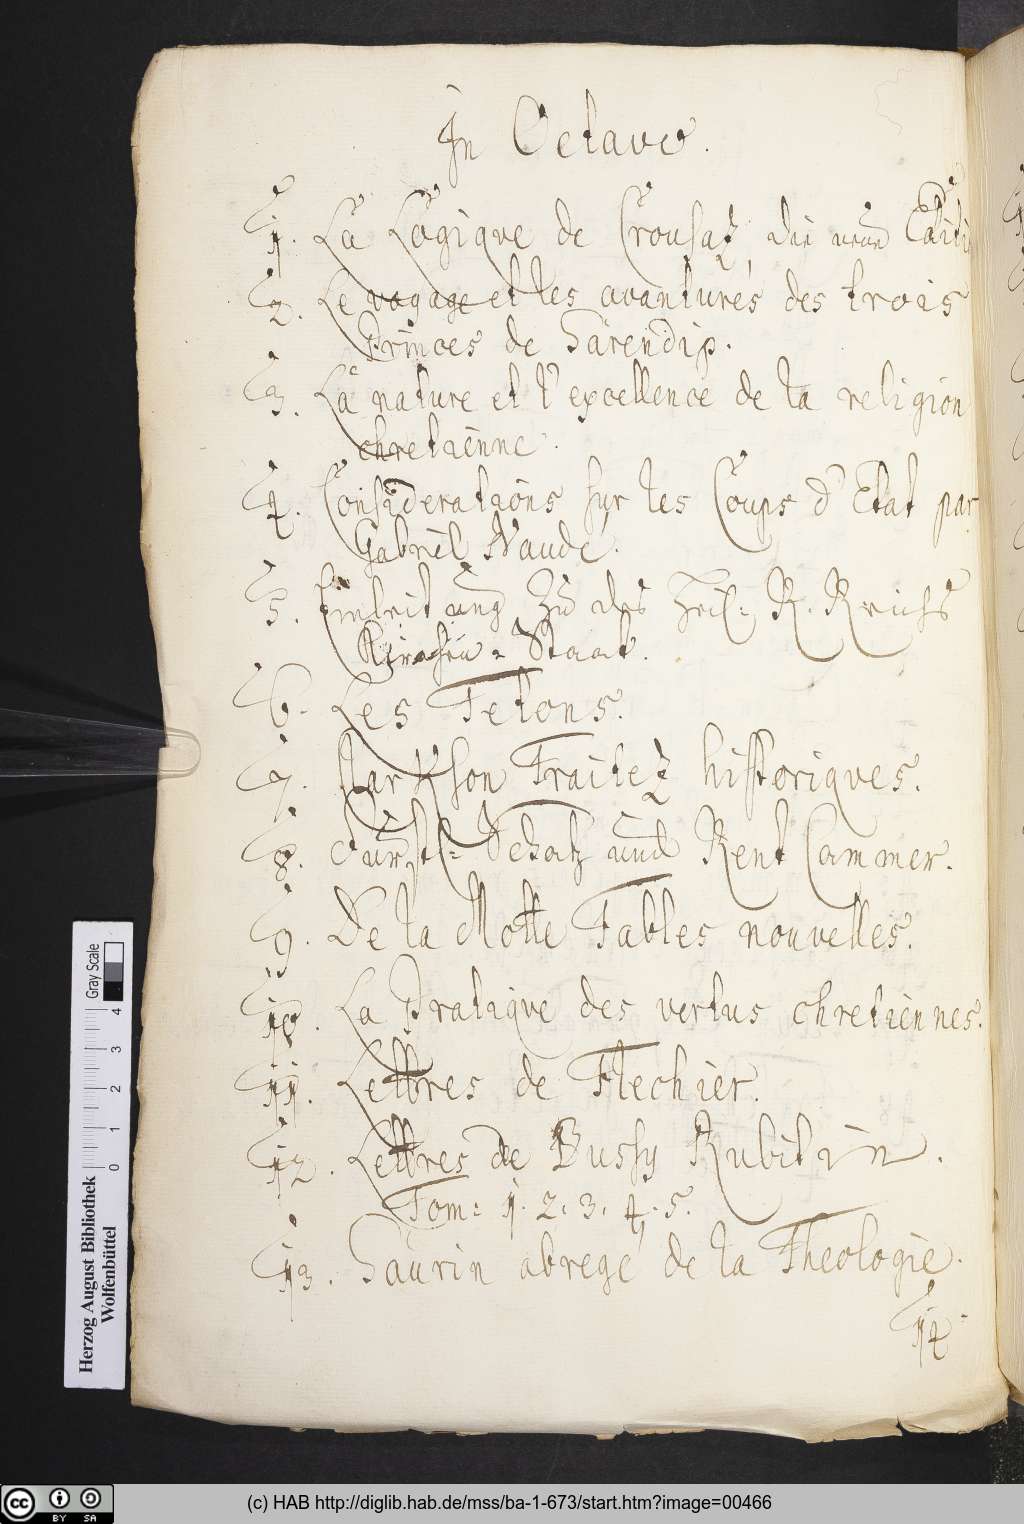 In Octavo.
1. La Logique de Crousaz die neue Editi
2. Le voyage et les avantures des trois
Princes de Sarendip.
3. La nature et l'excellence de la religion
chretienne.
4. Considerations sur les Coups d'Etat par
Gabriel Naudé.
5. Einleitung zu des Heil: R. Reichs
Kirchen-Staat.
6. Les Tetons.
7. Traitez historiques.
8. Fürstl: Schatz und Rent Cammer.
9. De la Motte Fables nouvelles.
10. La Pratique des vertus chretiennes.
11. Lettres de Flechier.
12. Lettres de Bussy Rubitin.
Tom: 1. 2. 3. 4. 5.
13. Saurin abregé de la Theologie.
14.
Gray Scale
4 3 2 1 0
Herzog August Bibliothek
Wolfenbüttel
cc BY SA
(c) HAB http://diglib.hab.de/mss/ba-1-673/start.htm?image=00466